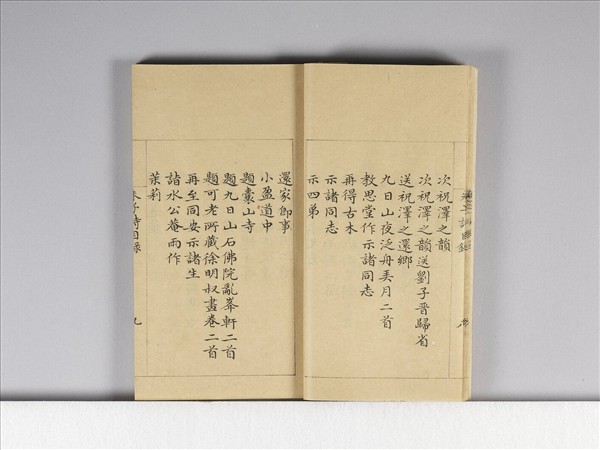 次祝澤之韻
次祝澤之韻送劉子晉歸省
送祝澤之還鄉
九日山夜泛舟弄月二首
教思堂作示諸同志
再得古木
示諸同志
示四弟
還家卽事
小盈道中
題囊山寺
題九日山石佛院亂峯軒二首
題可老所藏徐明叔畫卷二首
再至同安示諸生
諸水公菴雨作
茉莉
朱子詩目錄
九